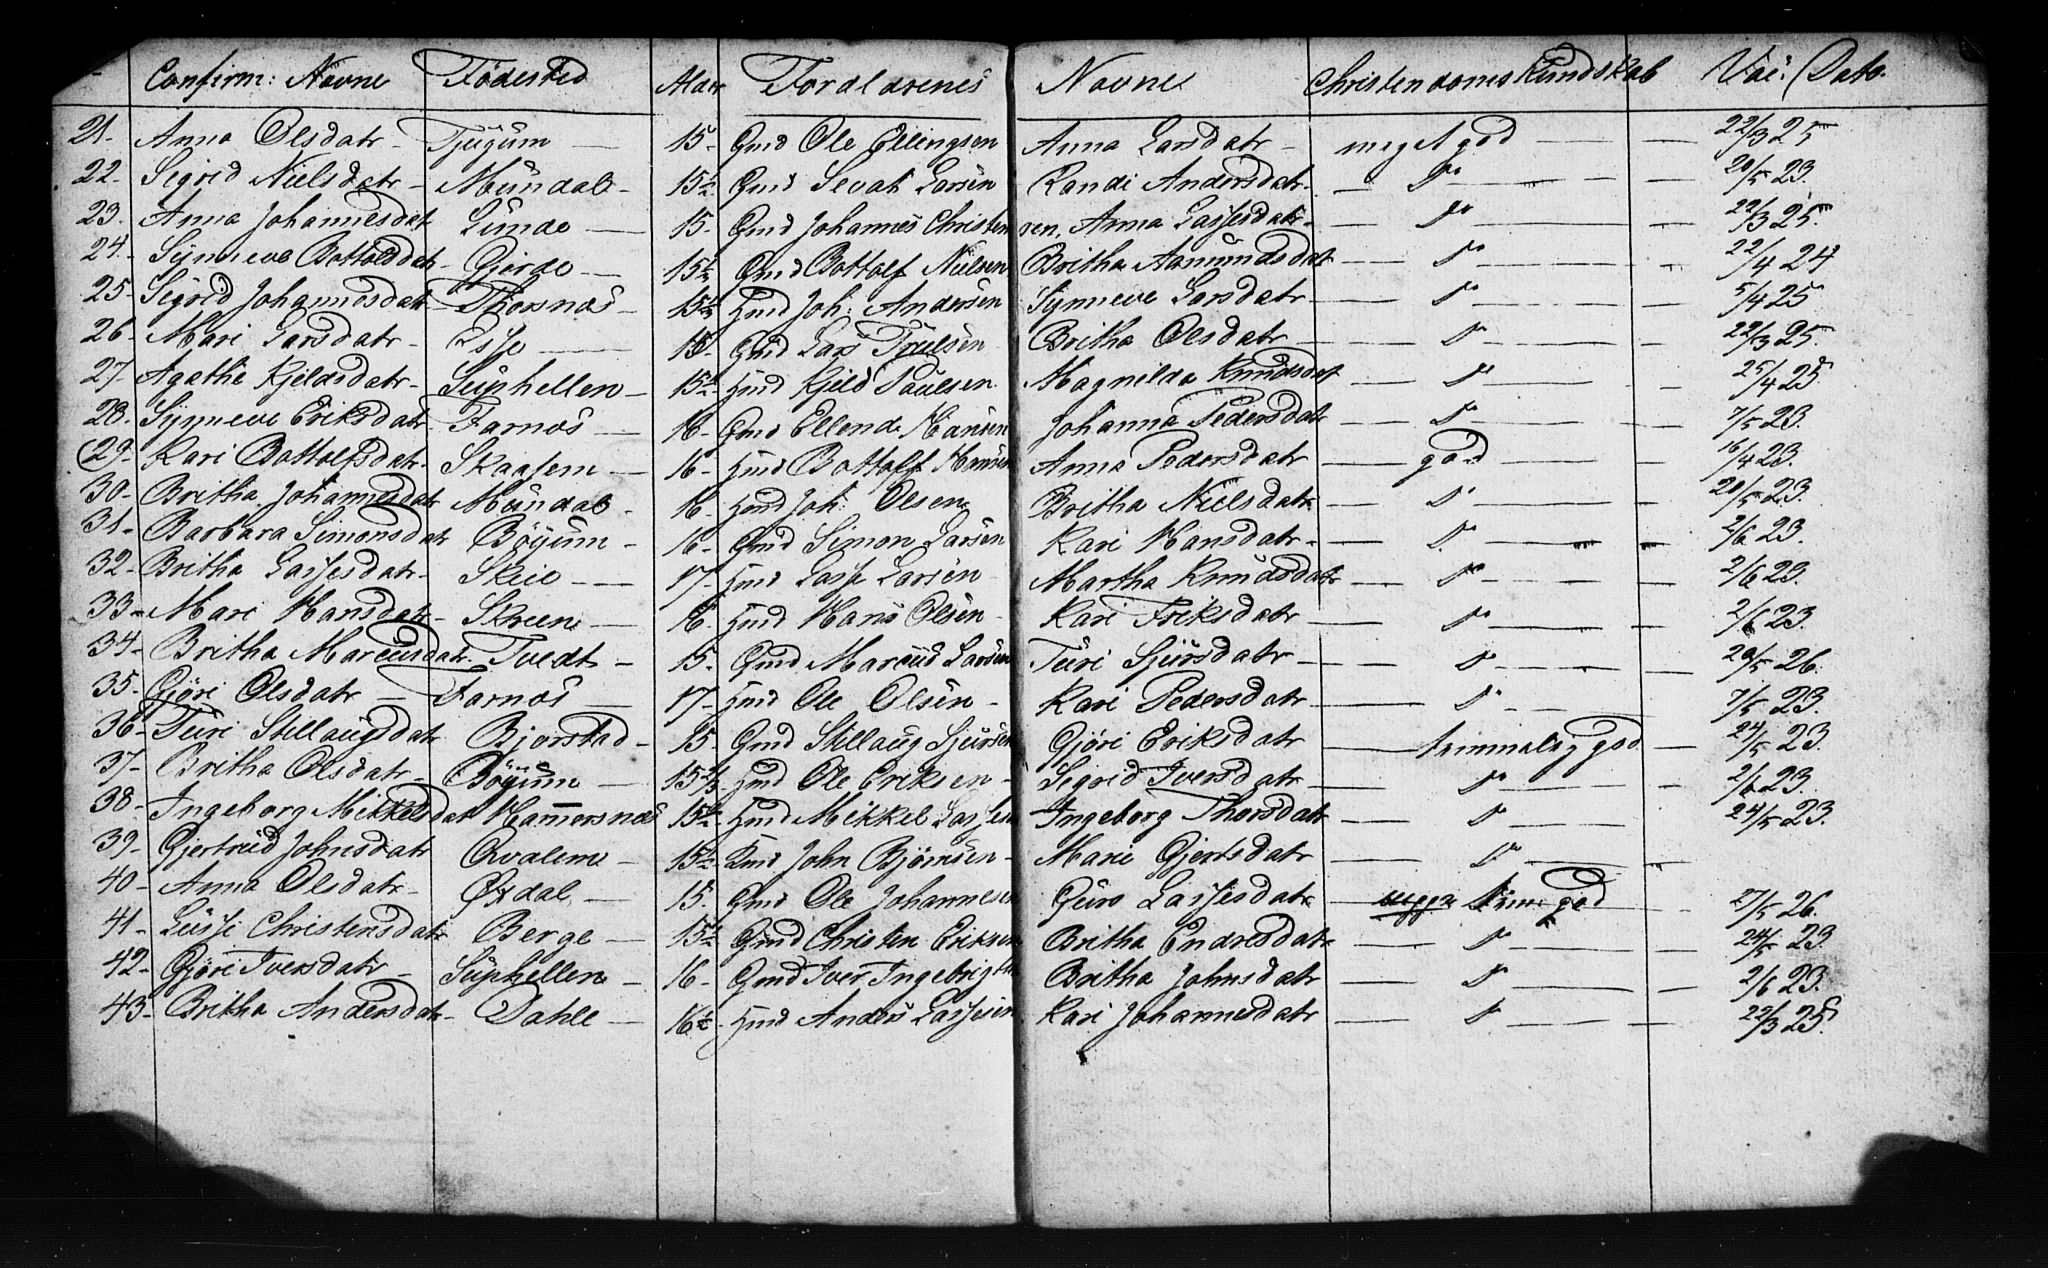 Confirm: Navne Födested Alder Forældrenes Navne Christendoms Kundskab Vac: Dato.
21. Anna Olsdatr Tjugum 15 Gmd Ole Ellingsen Anna Larsdatr meget god 22/3 25
22. Sigrid Nielsdatr Mundal 15½ Gmd Sevat Larsen Randi Andersdatr D° 20/5 23.
23. Anna Johannesdat Lunde 15 Gmd Johannes Christensen, Anna Lassesdatr D° 22/3 25.
24. Synneve Bottolfsdat Gjerde 15½ Gmd Bottolf Nielsen Britha Aamundsdat D° 22/4 24
25. Sigrid Johannesdatr Thorsnæs Hmd Joh: Andersen Synneve Larsdatr D° 5/4 25
26. Mari Larsdatr Esse 15 Gmd Lars Truelsen Britha Olsdatr D° 22/3 25.
27. Agathe Kjeldsdatr Suphellen 15½ Hmd Kjeld Paulsen Magnilda Knudsdat D° 25/4 25
28. Synneve Eriksdatr Farnæs 16 Gmd Ellend Hansen Johanna Pedersdatr D° 7/5 23.
29. Kari Bottolfsdatr Skaasem 16 Hmd Bottolf Hansen Anna Pedersdatr god 16/4 23.
30. Britha Johannesdatr Mundal 16 Hmd Joh: Olsen Britha Nielsdatr D° 20/5 23.
31. Barbara Simonsdatr Böyum 16 Gmd Simon Larsen Kari Hansdatr D° 2/6 23.
32. Britha Lassesdatr Skeie 17 Hmd Lasse Larsen Martha Knudsdatr D° 2/6 23.
33. Mari Hansdatr Skreen 16 Hmd Hans Olsen Kari Eriksdatr D° 2/6 23.
34. Britha Marcusdatr. Tvedt 15. Gmd Marcus Larsen Turi Sjursdatr D° 20/5 26.
35. Gjöri Olsdatr Farnæs 17 Hmd Ole Olsen Kari Pedersdatr D° 7/5 23.
36. Turi Stillaugsdatr Bjorstad 15. Gmd Stillaug Sjursen Gjöri Eriksdatr temmelig god 24/5 23.
37. Britha Olsdatr Böyum Hmd Ole Eriksen Sigrid Iversdatr D° 2/6 23.
38. Ingeborg Mikkelsdat Hamersnæs 15½ Hmd Mikkel Lassesen Ingeborg Thorsdatr D° 24/5 23.
39. Gjertrud Johnsdatr Qvalem 15½ John Björnsen Marie Gjertsdatr D°
40. Anna Olsdatr Öxdal 15. Gmd Ole Johannesen Guro Lassesdatr god 27/5 26.
41. Lussi Christensdatr Berge 15½ Gmd Christen Eriksen Britha Endresdatr D° 24/5 23
42. Gjöri Iversdatr Suphellen 16 Gmd Iver Ingebrigts Britha Johnsdatr D° 2/6 23.
43. Britha Andersdatr Dahle 16½ Hmd Anders Lassesen Kari Johannesdatr D° 22/3 25.